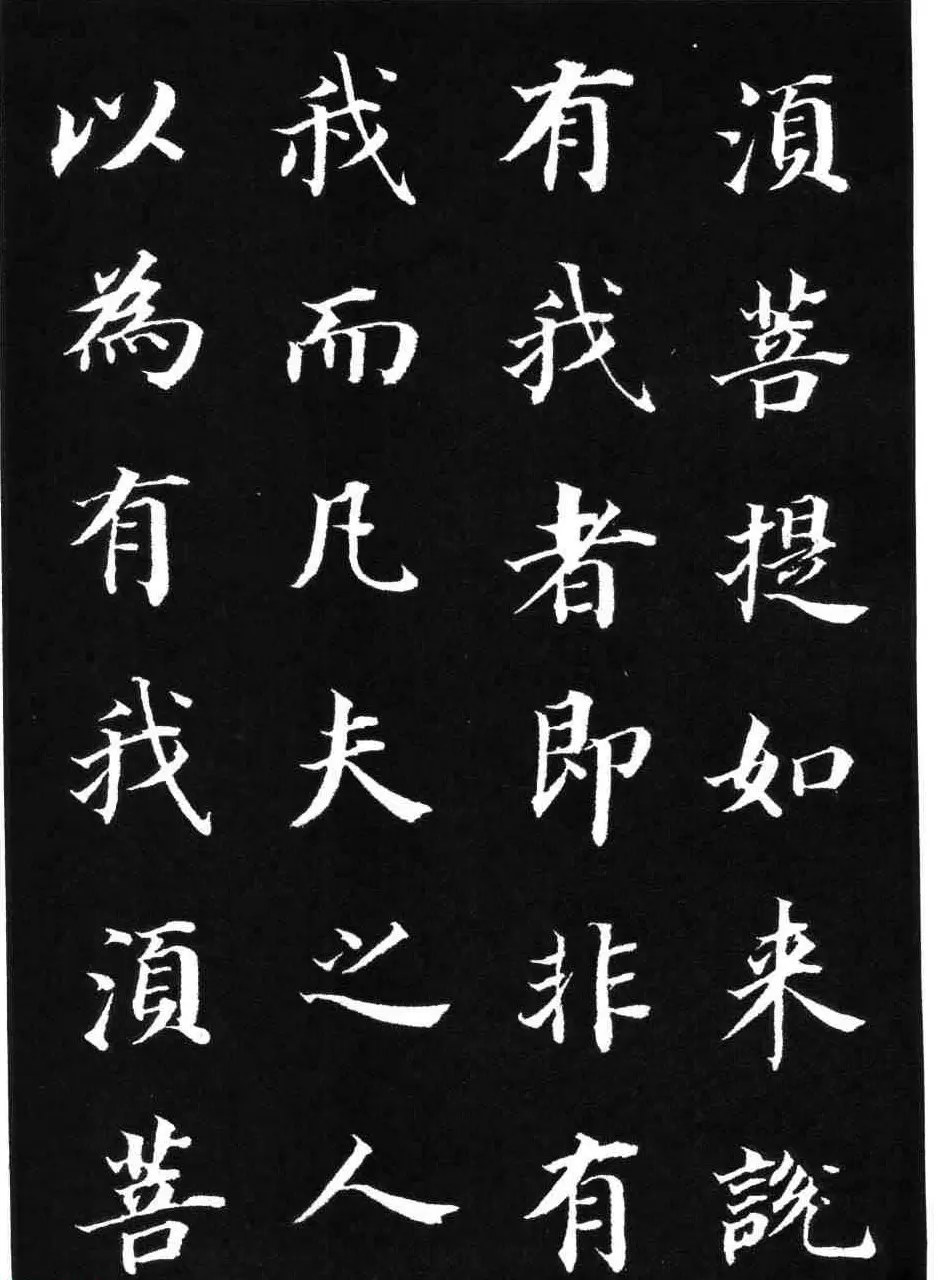 須菩提如来說
有我者即非有
我而凡夫之人
以為有我須菩